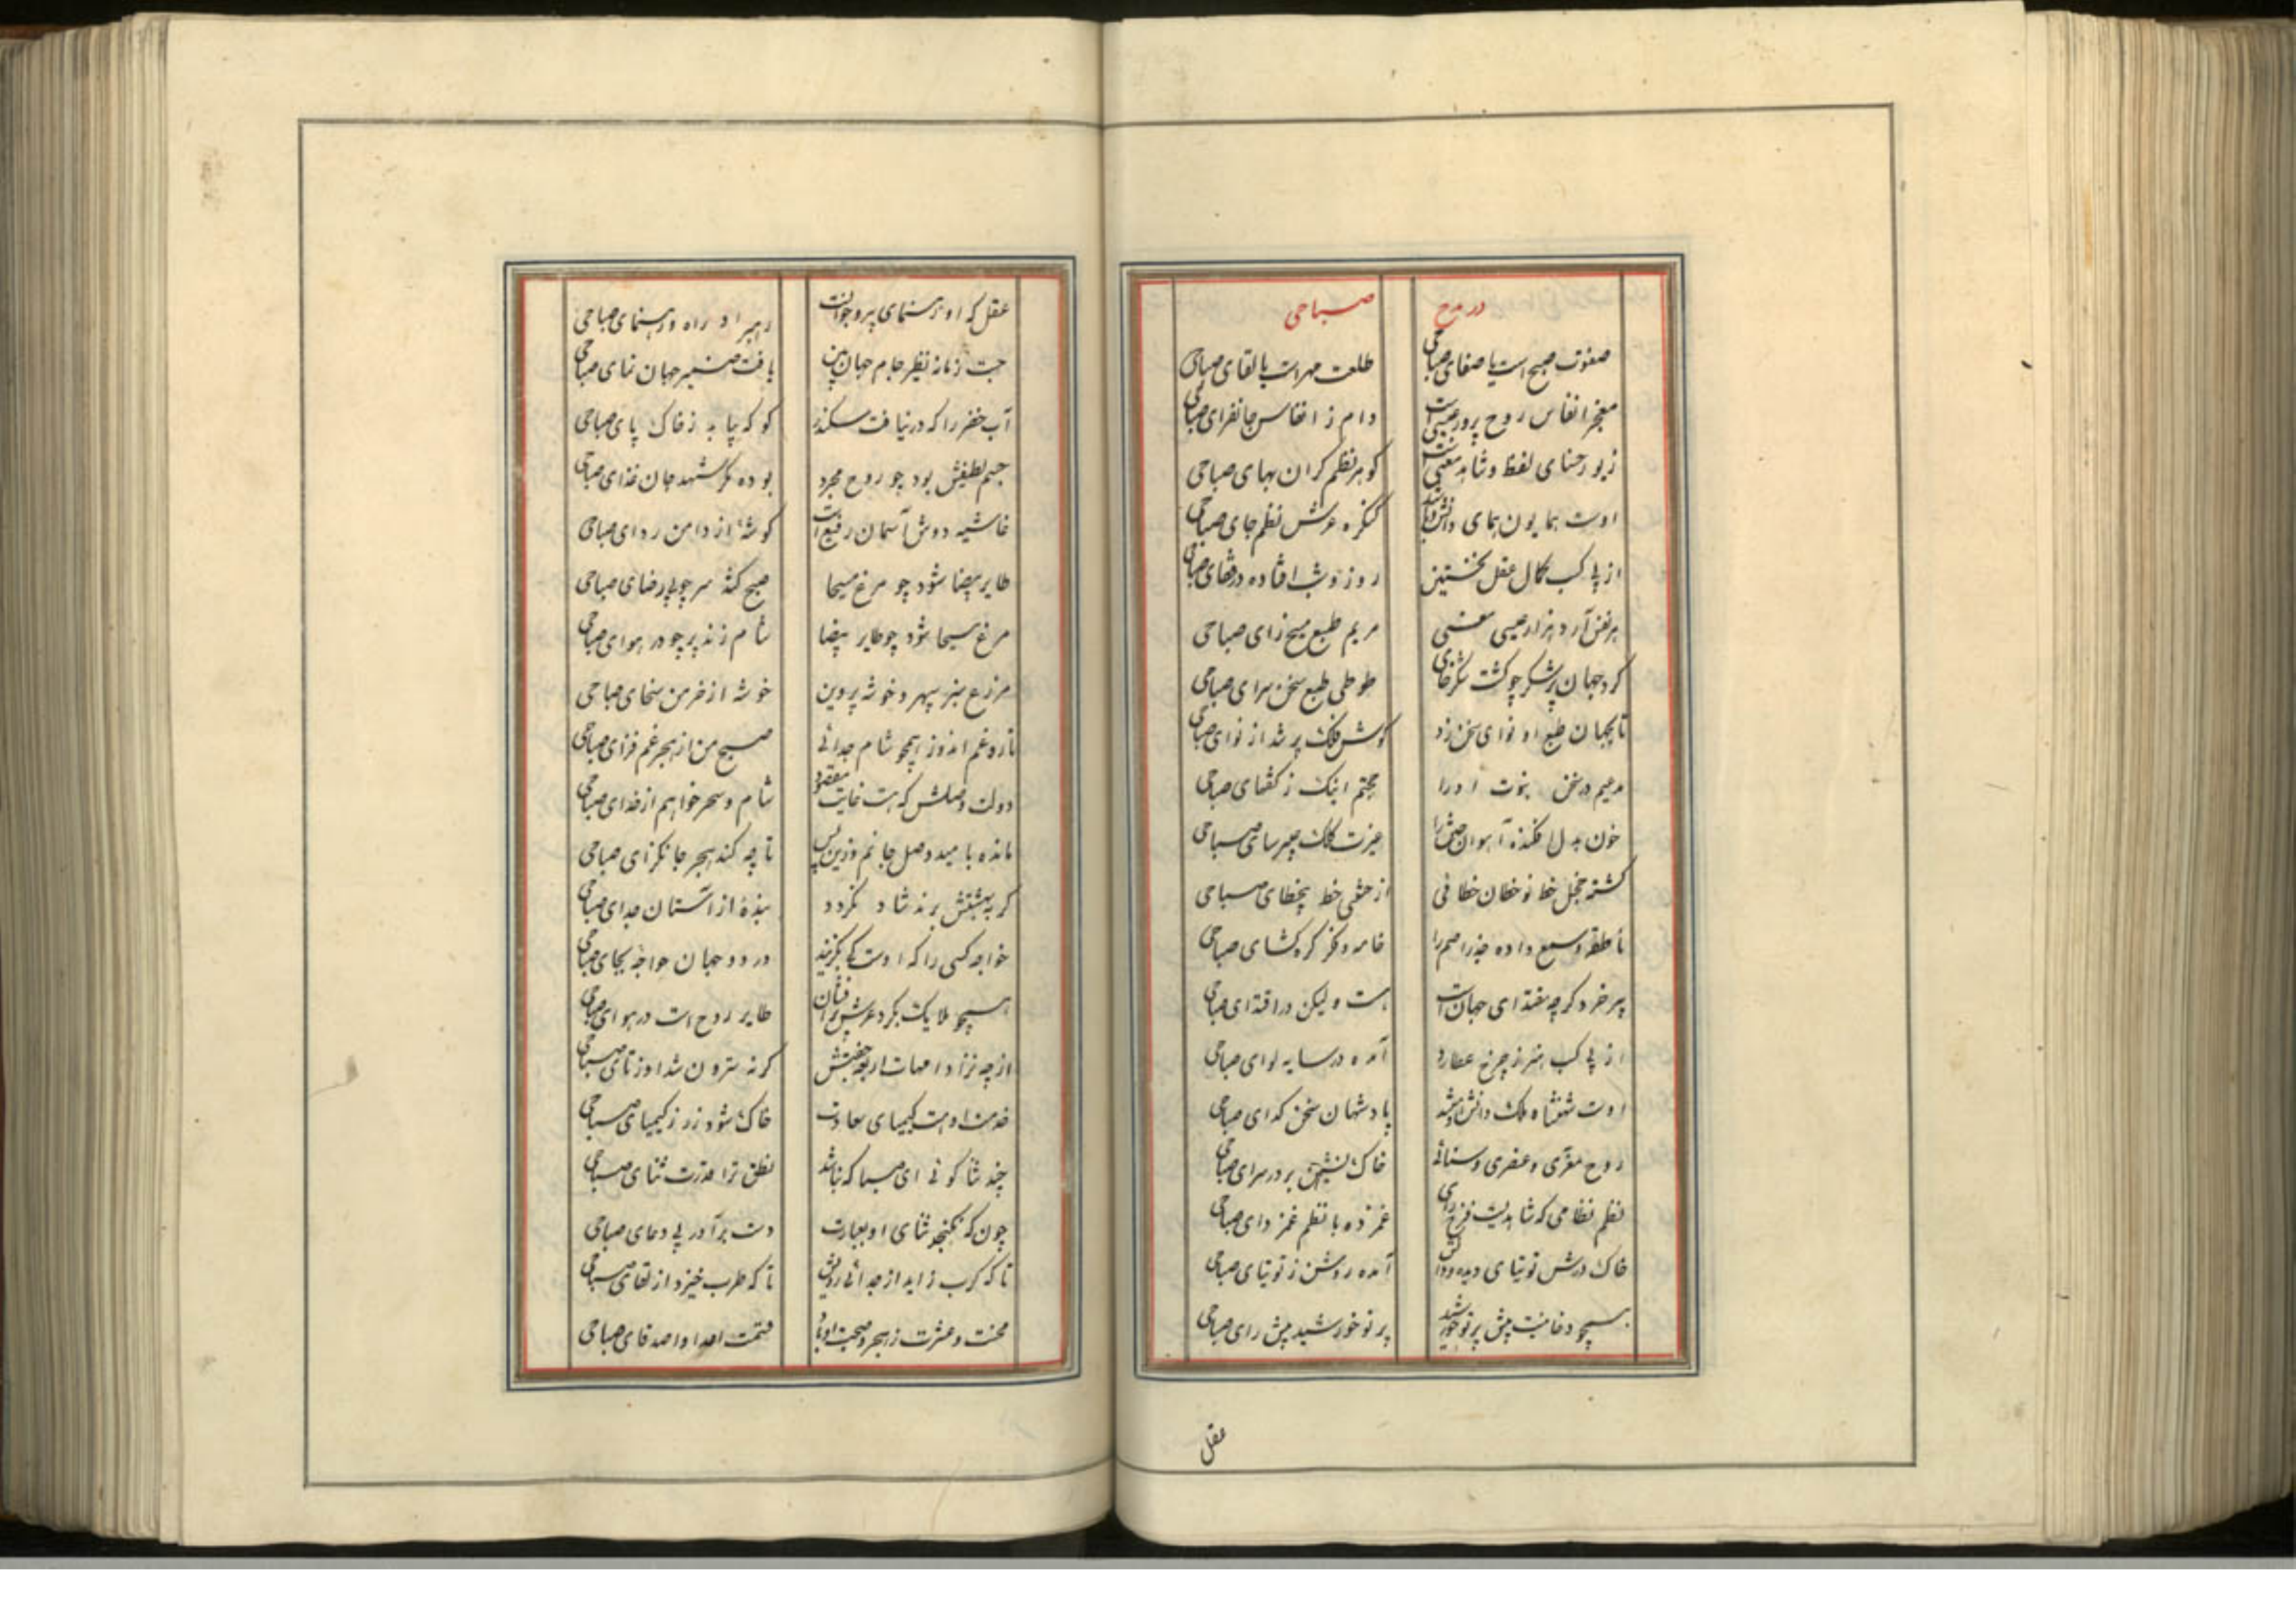 در مدح صباحی
صفوت صبح است یا صفای صباحی طلعت مهر است یا لقای صباحی
معجز انفاس روح پرور عیسی است دام ز انفاس جانفزای صباحی
زیور حسنای لفظ و شاهد معنی است کوهر نظم کران بهای صباحی
اوست همایون همای دانش و باشد کنکره عرش نظم جای صباحی
از پی کسب کمال عقل نخستین روز و شب افتاده در قفای صباحی
هر نفس آرد هزار عیسی معنی مریم طبع مسیح زای صباحی
کرد جهان پر شکر چو کشت شکرخای طوطی طبع سخن سرای صباحی
تا بجهان طبع او نوای سخن زد کوش فلک پر شد از نوای صباحی
نبوت او را حجتم اینک ز کفتهای صباحی
خون بدل افکنده آهوان ختن را غیرت کلک صبا حی
کشته خجل خط نوخطان خطائی از خط بیخطای صباحی
ناطقه و سمع داده جذر اصم را خامه و فکر کره کشای صباحی
پیر خرد کرچه مقتدای جهان است هست ولیکن در اقتدای صباحی
از پی کسب هنر ز چرخ عطارد آمده در سایه لوای صباحی
اوست شهنشاه ملک دانش و باشد پادشهان سخن کدای صباحی
روح معزی و عنصری و سنائی خاک نشین بر در سرای صباحی
نظم نظامی که شاهدیست فرح زای غمزده با نظم غمزدای صباحی
خاک درش توتیای دیده و آمده روشن ز توتیای صباحی
همچو دخانیست پیش پرتو خورشید پرتو خورشید پیش رای صباحی
عقل
عقل که او رهنمای پیر و جوانست رهبر او راه و رهنمای صباحی
جست زمانه نظیر جام جهان بین یافت ضمیر جهان نمای صباحی
آب خضر را که در نیافت سکندر کو که بیابد ز خاک پای صباحی
جسم لطیفش بود چو روح مجرد بوده مکر شهد جان غذای صباحی
غاشیه دوش آسمان رفیع است کوشهٔ از دامن ردای صباحی
طایر بیضا شود چو مرغ مسیحا صبح کشد سر چو بی رضای صباحی
مرغ مسیحا شود چو طایر بیضا شام زند پر چو در هوای صباحی
مزرع سبز سپهر و خوشه پروین خوشه از خرمن سخای صباحی
تار و غم اندوز همچو شام جدائی صبح من از هجر غم فزای صباحی
دولت وصلش که هست غایت مقصود شام و سحر خواهم از خدای صباحی
مانده بامید وصل جانم و زین پس تا چه کند هجر جانکزای صباحی
کر به بهشتش برند شاد نکردد بندهٔ از آستان جدای صباحی
خواجه کسی را که اوست کی بکزیند در دو جهان خواجه بجای صباحی
همچو ملایک بکرد عرش طایر روح است در هوای صباحی
از چه نزاد امهات اربعه جفتش کرنه سترون شد او ز تای صباحی
خدمت اوهست کیمیای سعادت خاک شود زر ز کیمیای صباحی
چند ثنا کوئی ای صبا که نباشد نطق ترا قدرت ثنای صباحی
چون که نکنجد ثنای او بعبارت دست برآور پی دعای صباحی
تا که کرب زاید از جدائی تا که طرب خیزد از لقای صباحی
محنت و عشرت ز هجر و صحبت او باد قسمت اعدا و اصدقای صباحی